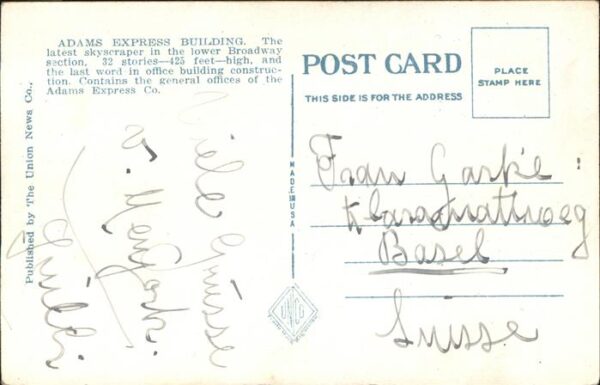 ADAMS EXPRESS BUILDING. The
latest skyscraper in the lower Broadway
section, 32 stories—425 feet—high, and
the last word in office building construc-
tion. Contains the general offices of the
Adams Express Co.
Published by The Union News Co.,
Viele Grüsse
v. Newyork
MADE IN USA
UNCO
POST CARD
THIS SIDE IS FOR THE ADDRESS
PLACE
STAMP HERE
Frau Garke
Basel
Suisse